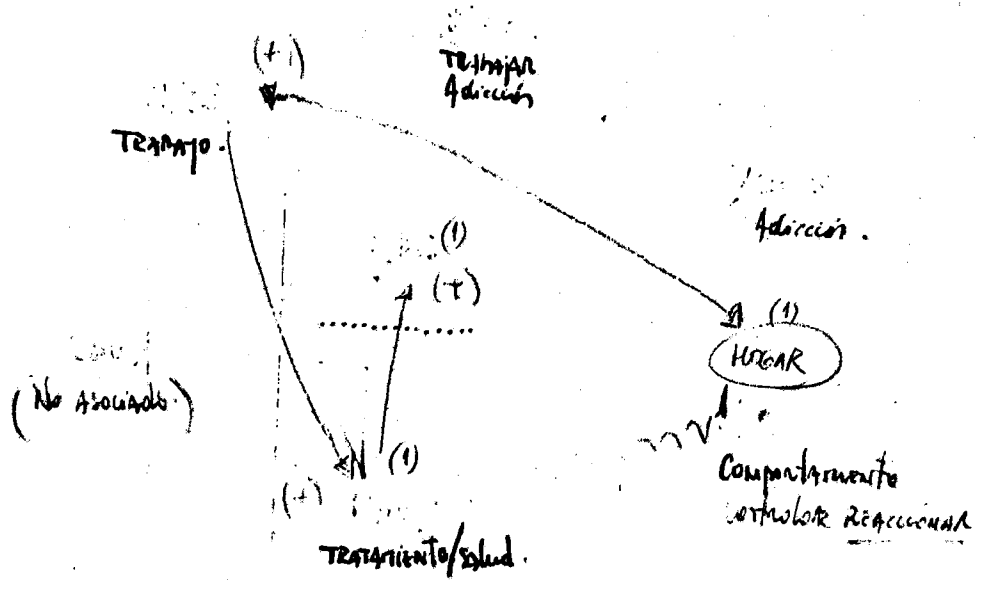 (+)
TRABAJAR
Adicción
TRABAJO.
Adicción.
(1)
(+)
(1)
HOGAR
(No ASOCIADO.)
N (1)
(+)
Comportamiento
CONTROLAR REACCIONAR
TRATAMIENTO/Salud.